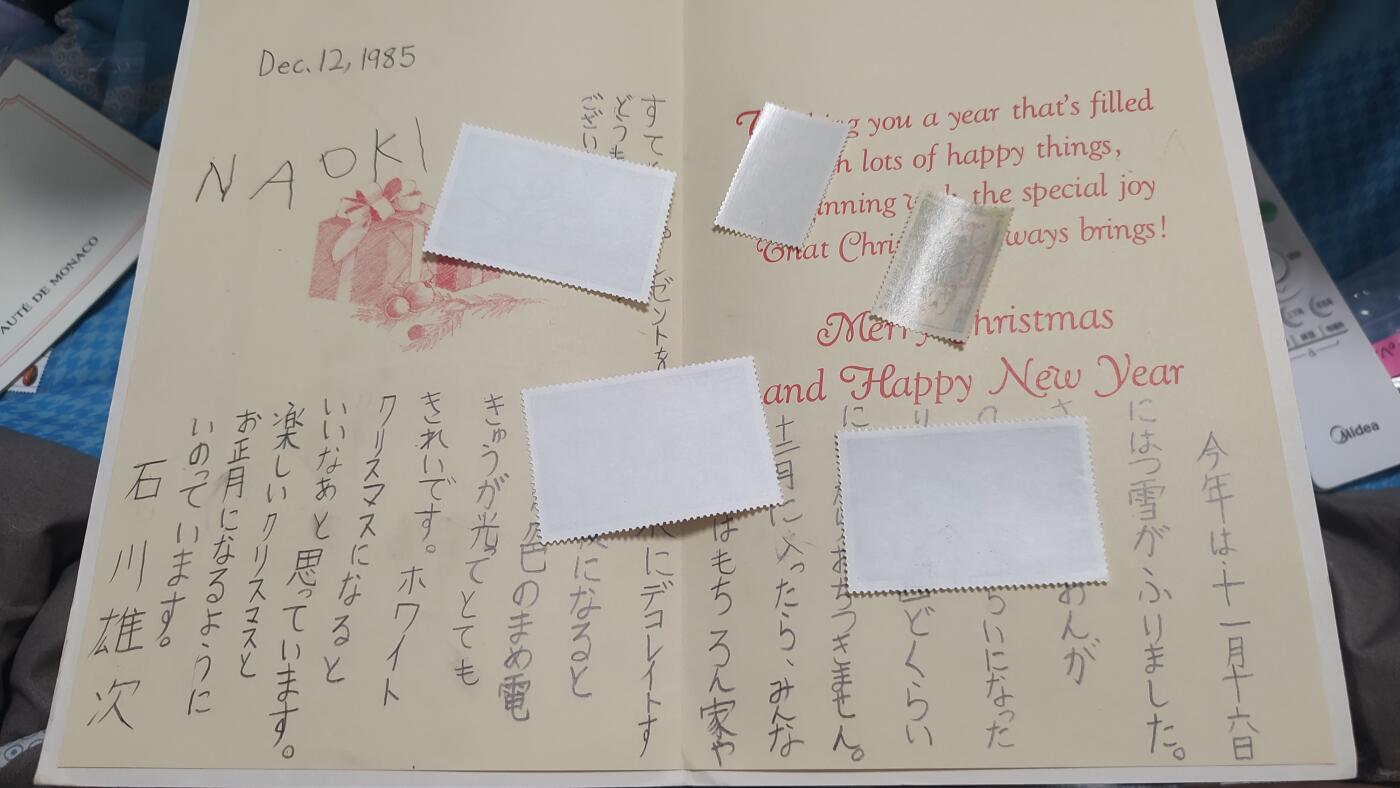 Dec. 12, 1985
NAOKI
すて ゼントを
どうも
ござい
you a year that's filled
lots of happy things,
the special joy
ways brings!
Merry Christmas
and Happy New Year
今年は十一月十六日
にはつ雪がふりました。
おんが
らいになった
どくらい
に おちつきません。
十二月に入ったら、みんな
はもちろん家や
にデコレイトす
になると
色のまめ電
きゅうが光ってとても
きれいです。ホワイト
クリスマスになると
いいなあと思っています。
楽しいクリスマスと
お正月になるように
いのっています。
石川雄次
AUTÉ DE MONACO
Midea